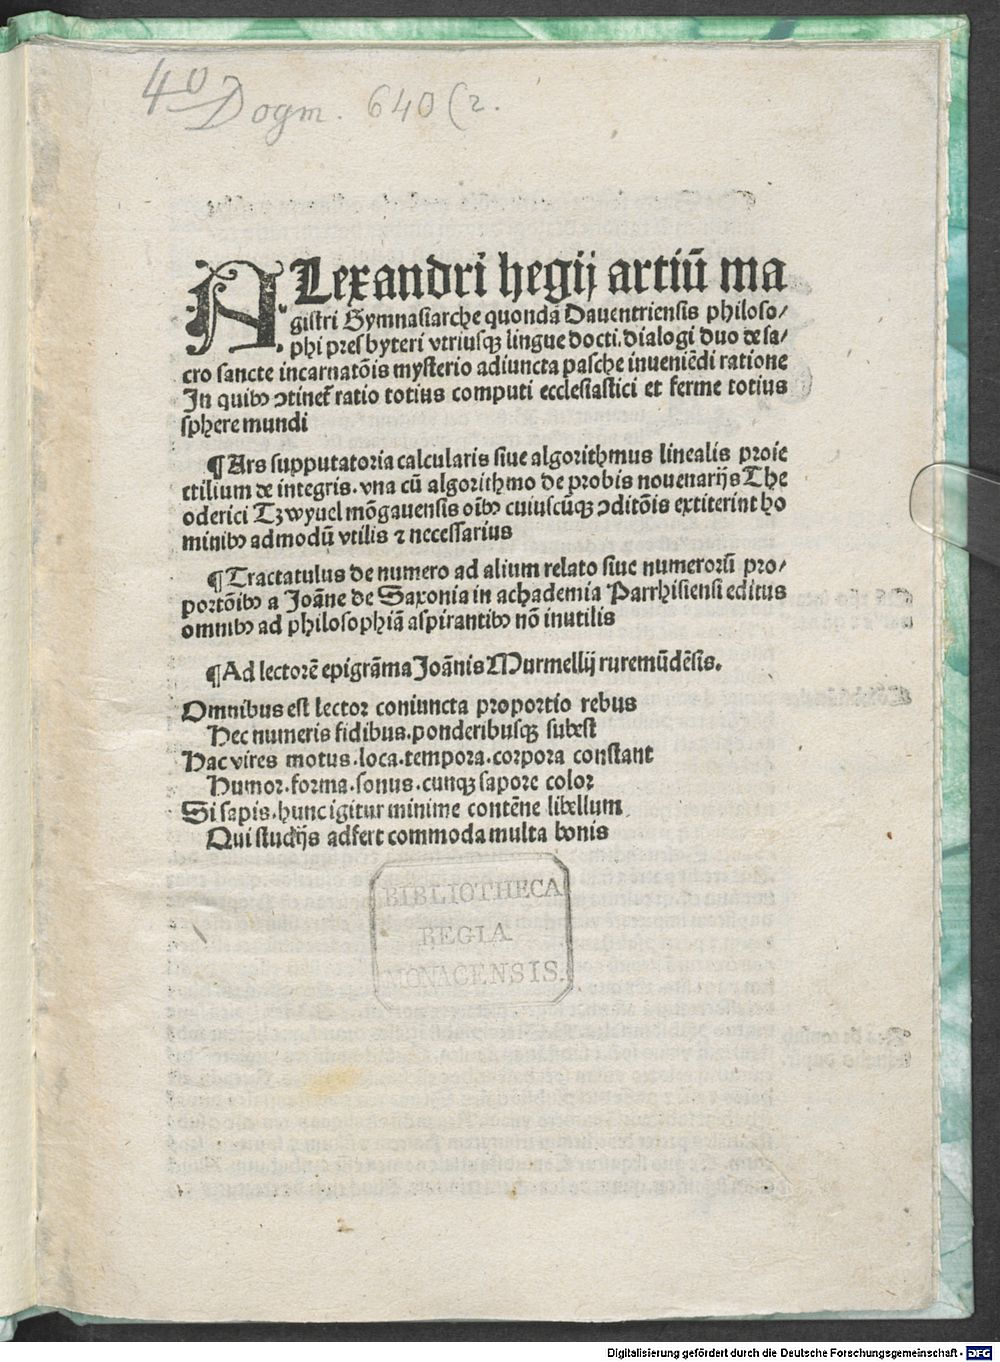 4° Dogm. 640 (2.
ALexandri hegij artiū ma
gistri Gymnasiarche quondā Dauentriensis philoso/
phi presbyteri vtriusqꝫ lingue docti. dialogi duo de sa/
cro sancte incarnatōis mysterio adiuncta pasche inueniēdi ratione
In quibꝰ ꝯtinet᷑ ratio totius computi ecclesiastici et ferme totius
sphere mundi
¶ Ars supputatoria calcularis siue algorithmus linealis proie
ctilium de integris. vna cū algorithmo de probis nouenarijs The
oderici Tzwyuel mōgauensis oībꝰ cuiuscūqꝫ ꝯditōis extiterint ho
minibꝰ admodū vtilis ⁊ necessarius
¶ Tractatulus de numero ad alium relato siue numerorū pro/
portōibꝰ a Joāne de Saxonia in achademia Parrhisiensi editus
omnibꝰ ad philosophiā aspirantibꝰ nō inutilis
¶ Ad lectorē epigrāma Joānis Murmellij ruremūdēsis.
Omnibus est lector coniuncta proportio rebus
Hec numeris fidibus. ponderibusqꝫ subest
Hac vires motus. loca. tempora. corpora constant
Humor. forma. sonus. cunqꝫ sapore color
Si sapis. hunc igitur minime contēne libellum
Qui studijs adfert commoda multa bonis
BIBLIOTHECA
REGIA
MONACENSIS.
Digitalisierung gefördert durch die Deutsche Forschungsgemeinschaft - DFG